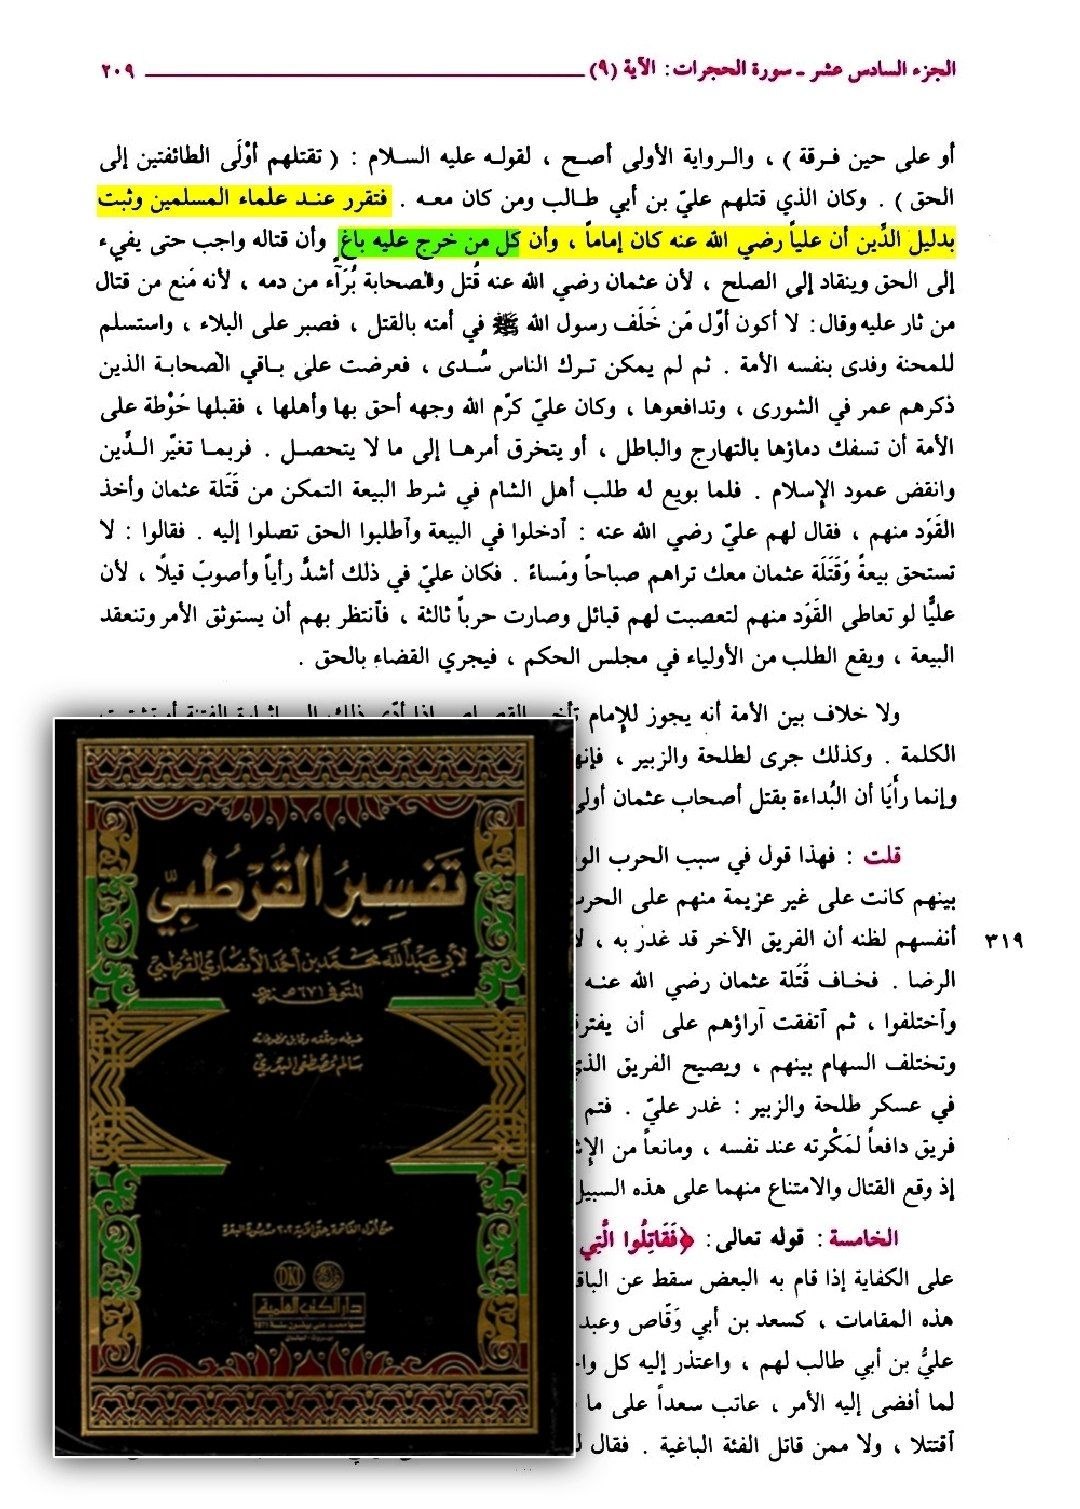 الجزء السادس عشر ـ سورة الحجرات: الآية (٩) ٢٠٩
أو على حين فرقة ) ، والرواية الأولى أصح ، لقوله عليه السلام : ( تقتلهم أوْلَى الطائفتين إلى
الحق ) . وكان الذي قتلهم عليّ بن أبي طالب ومن كان معه . فتقرر عند علماء المسلمين وثبت
بدليل الدِّين أن علياً رضي الله عنه كان إماماً ، وأن كل من خرج عليه باغٍ وأن قتاله واجب حتى يفيء
إلى الحق وينقاد إلى الصلح ، لأن عثمان رضي الله عنه قُتل والصحابة بُرَآء من دمه ، لأنه مَنع من قتال
من ثار عليه وقال: لا أكون أوّل مَن خَلَف رسول الله ﷺ في أمته بالقتل ، فصبر على البلاء ، واستسلم
للمحنة وفدى بنفسه الأمة . ثم لم يمكن ترك الناس سُدى ، فعرضت على باقي الصحابة الذين
ذكرهم عمر في الشورى ، وتدافعوها ، وكان عليّ كرّم الله وجهه أحق بها وأهلها ، فقبلها حَوْطة على
الأمة أن تسفك دماؤها بالتهارج والباطل ، أو يتخرق أمرها إلى ما لا يتحصل . فربما تغيّر الدِّين
وانقض عمود الإسلام . فلما بويع له طلب أهل الشام في شرط البيعة التمكن من قَتَلة عثمان وأخذ
القَوَد منهم ، فقال لهم عليّ رضي الله عنه : ٱدخلوا في البيعة وٱطلبوا الحق تصلوا إليه . فقالوا : لا
تستحق بيعةً وَقَتَلَة عثمان معك تراهم صباحاً ومَساءً . فكان عليّ في ذلك أشدُّ رأياً وأصوبَ قيلًا ، لأن
عليًّا لو تعاطى القَوَد منهم لتعصبت لهم قبائل وصارت حرباً ثالثة ، فٱنتظر بهم أن يستوثق الأمر وتنعقد
البيعة ، ويقع الطلب من الأولياء في مجلس الحكم ، فيجري القضاء بالحق .
ولا خلاف بين الأمة أنه يجوز للإمام
الكلمة . وكذلك جرى لطلحة والزبير ،
وإنما رأَيَا أن البُداءة بقتل أصحاب عثمان
قلت : فهذا قول في سبب الحرب
بينهم كانت على غير عزيمة منهم على الحرب
أنفسهم لظنه أن الفريق الآخر قد غدر به ، ٣١٩
الرضا . فخاف قَتَلة عثمان رضي الله عنه
وٱختلفوا ، ثم ٱتفقت آراؤهم على أن
وتختلف السهام بينهم ، ويصيح الفريق
في عسكر طلحة والزبير : غدر عليّ . فتم
فريق دافعاً لمَكْرته عند نفسه ، ومانعاً من
إذ وقع القتال والامتناع منهما على هذه السبيل
الخامسة : قوله تعالى: ﴿فَقَاتِلُوا الَّتِي
على الكفاية إذا قام به البعض سقط عن
هذه المقامات ، كسعد بن أبي وَقّاص
عليُّ بن أبي طالب لهم ، واعتذر إليه كل
لما أفضى إليه الأمر ، عاتب سعداً على ما
ٱقتتلا ، ولا ممن قاتل الفئة الباغية . فقال
تَفسِيرُ القُرطُبيّ
لأبي عبد الله محمد بن أحمد الأنصاري القرطبي
المتوفى ٦٧١ هـ
سالم مصطفى البدري
DKI
دار الكتب العلمية